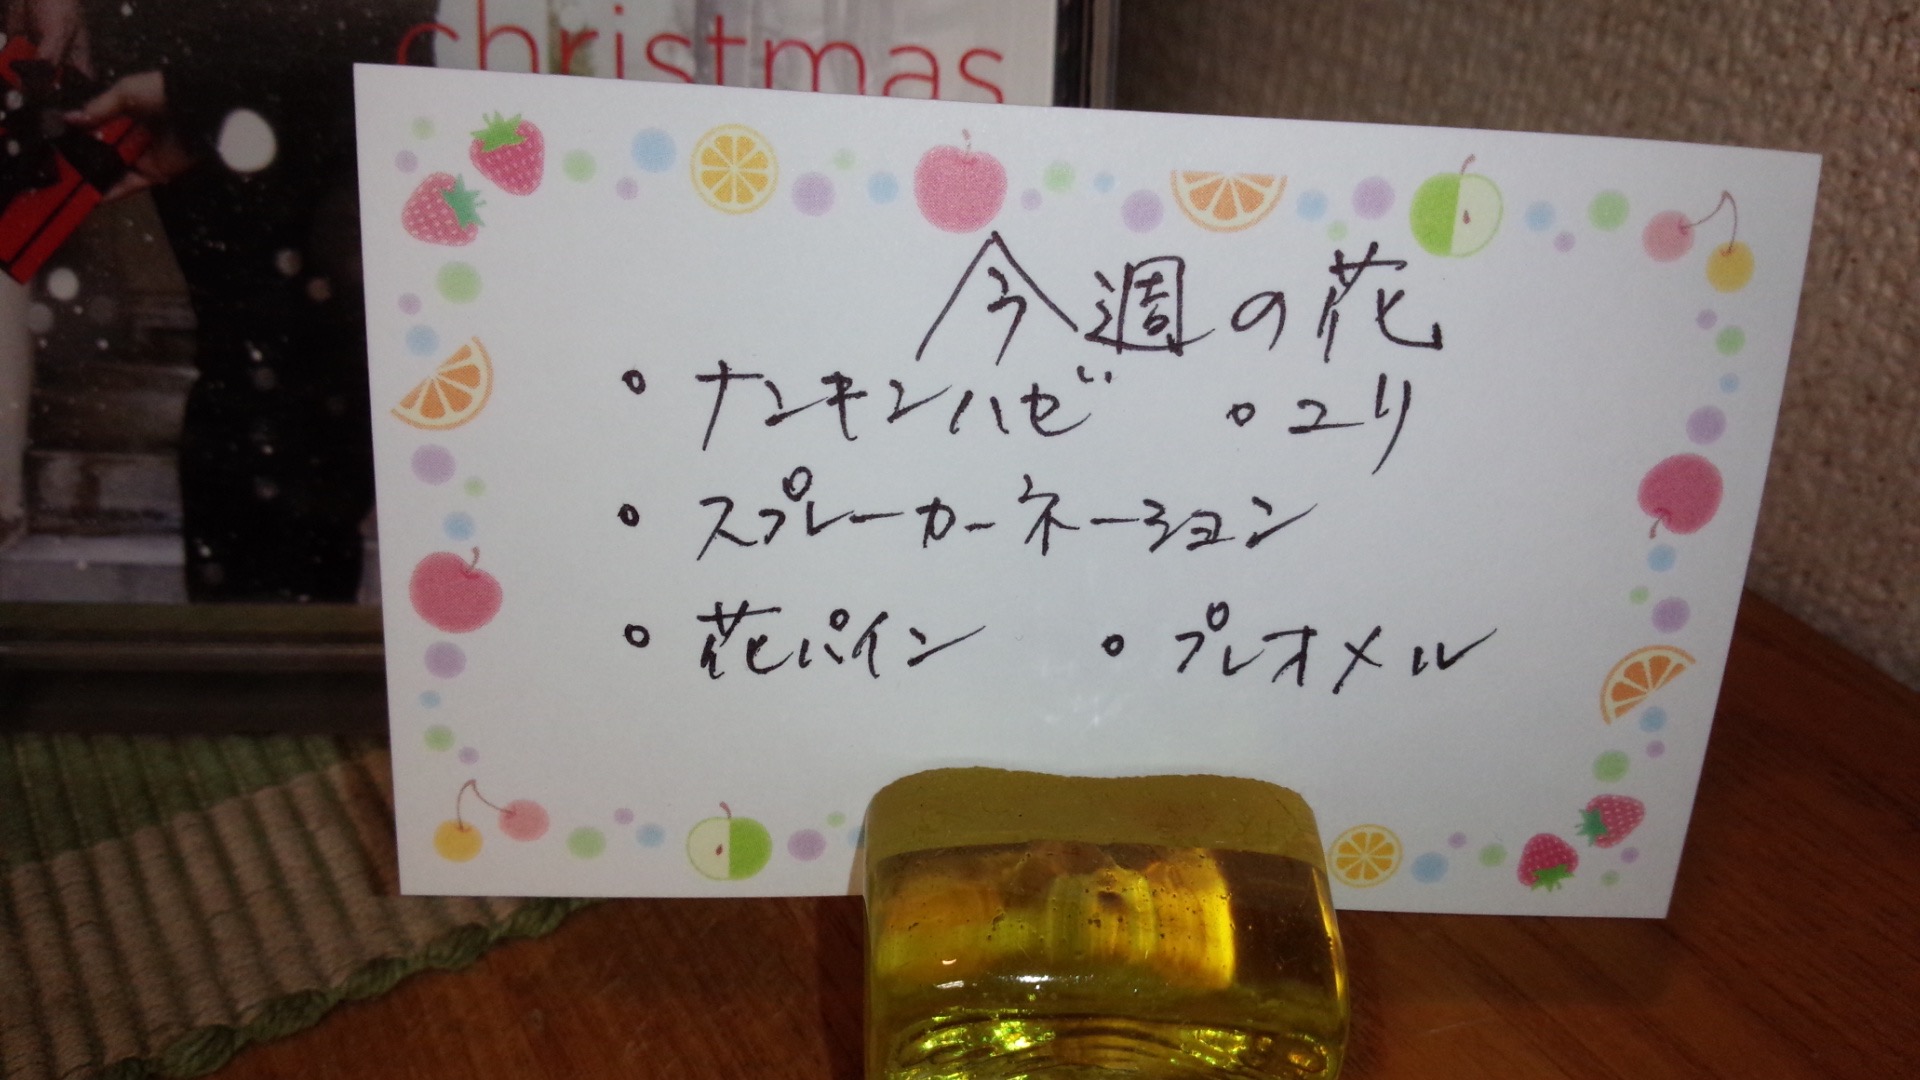 christmas
今週の花
• ナンキンハゼ • ユリ
• スプレーカーネーション
• 花パイン • プレオメル